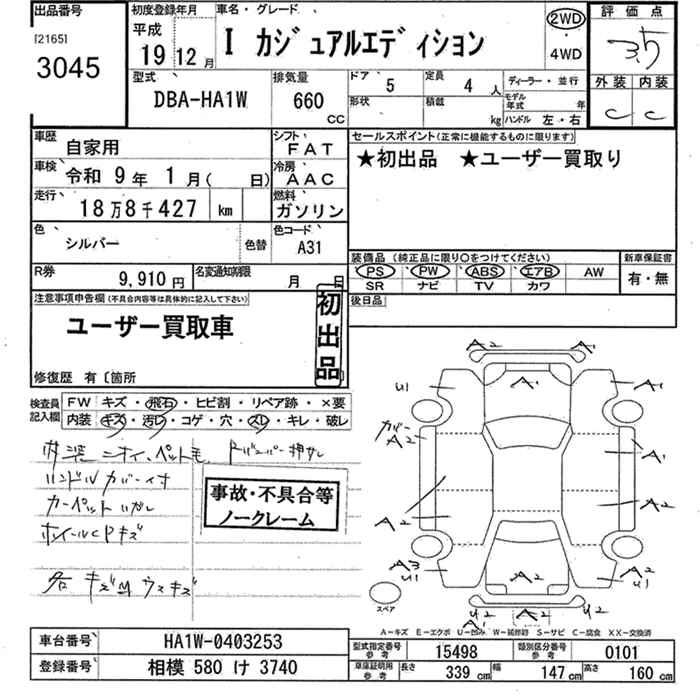 出品番号 初度登録年月 車名・グレード 評価点
[2165] 平成 2WD
3045 19 12月 I カジュアルエディション ・ 3.5
4WD
型式 排気量 ドア 5 定員 4人 ディーラー・並行 外装 内装
DBA-HA1W 660 CC 形状 積載 kg モデル年式 年 C C
ハンドル 左・右
車歴 自家用 シフト FAT セールスポイント(正常に機能するものに限ります)
車検 令和 9年 1月( 日) 冷房 AAC ★初出品 ★ユーザー買取り
走行 18万8千427 km 燃料 ガソリン
色 シルバー 色替 色コード A31
装備品 (純正品に限り〇をつけてください) 新車保証書
R券 9,910円 名変通知期限 月 日 PS PW ABS エアB AW 有・無
SR ナビ TV カワ
注意事項申告欄(不具合内容等は具体的に記入して下さい) 後日品
ユーザー買取車 初出品
修復歴 有〔箇所
検査員記入欄 FW キズ・飛石・ヒビ割・リペア跡・×要
内装 キズ・汚レ・コゲ・穴・スレ・キレ・破レ
内装 ニオイ、ペット毛
ハンドルカバー付
カーペットハガレ
ホイールCPキズ
各キズ
事故・不具合等
ノークレーム
A2
A1 A1
U1 A1
カバー A2 A1
A2 A2
A3 U1 A2 A2 U1
スペア U2 A2 U2
A1
A-キズ E-エクボ U-凹み W-補修跡 S-サビ C-腐食 XX-交換済
車台番号 HA1W-0403253 型式指定番号 参考 15498 類別区分番号 参考 0101
登録番号 相模 580 け 3740 車庫証明用 参考 長さ 339cm 幅 147cm 高さ 160cm